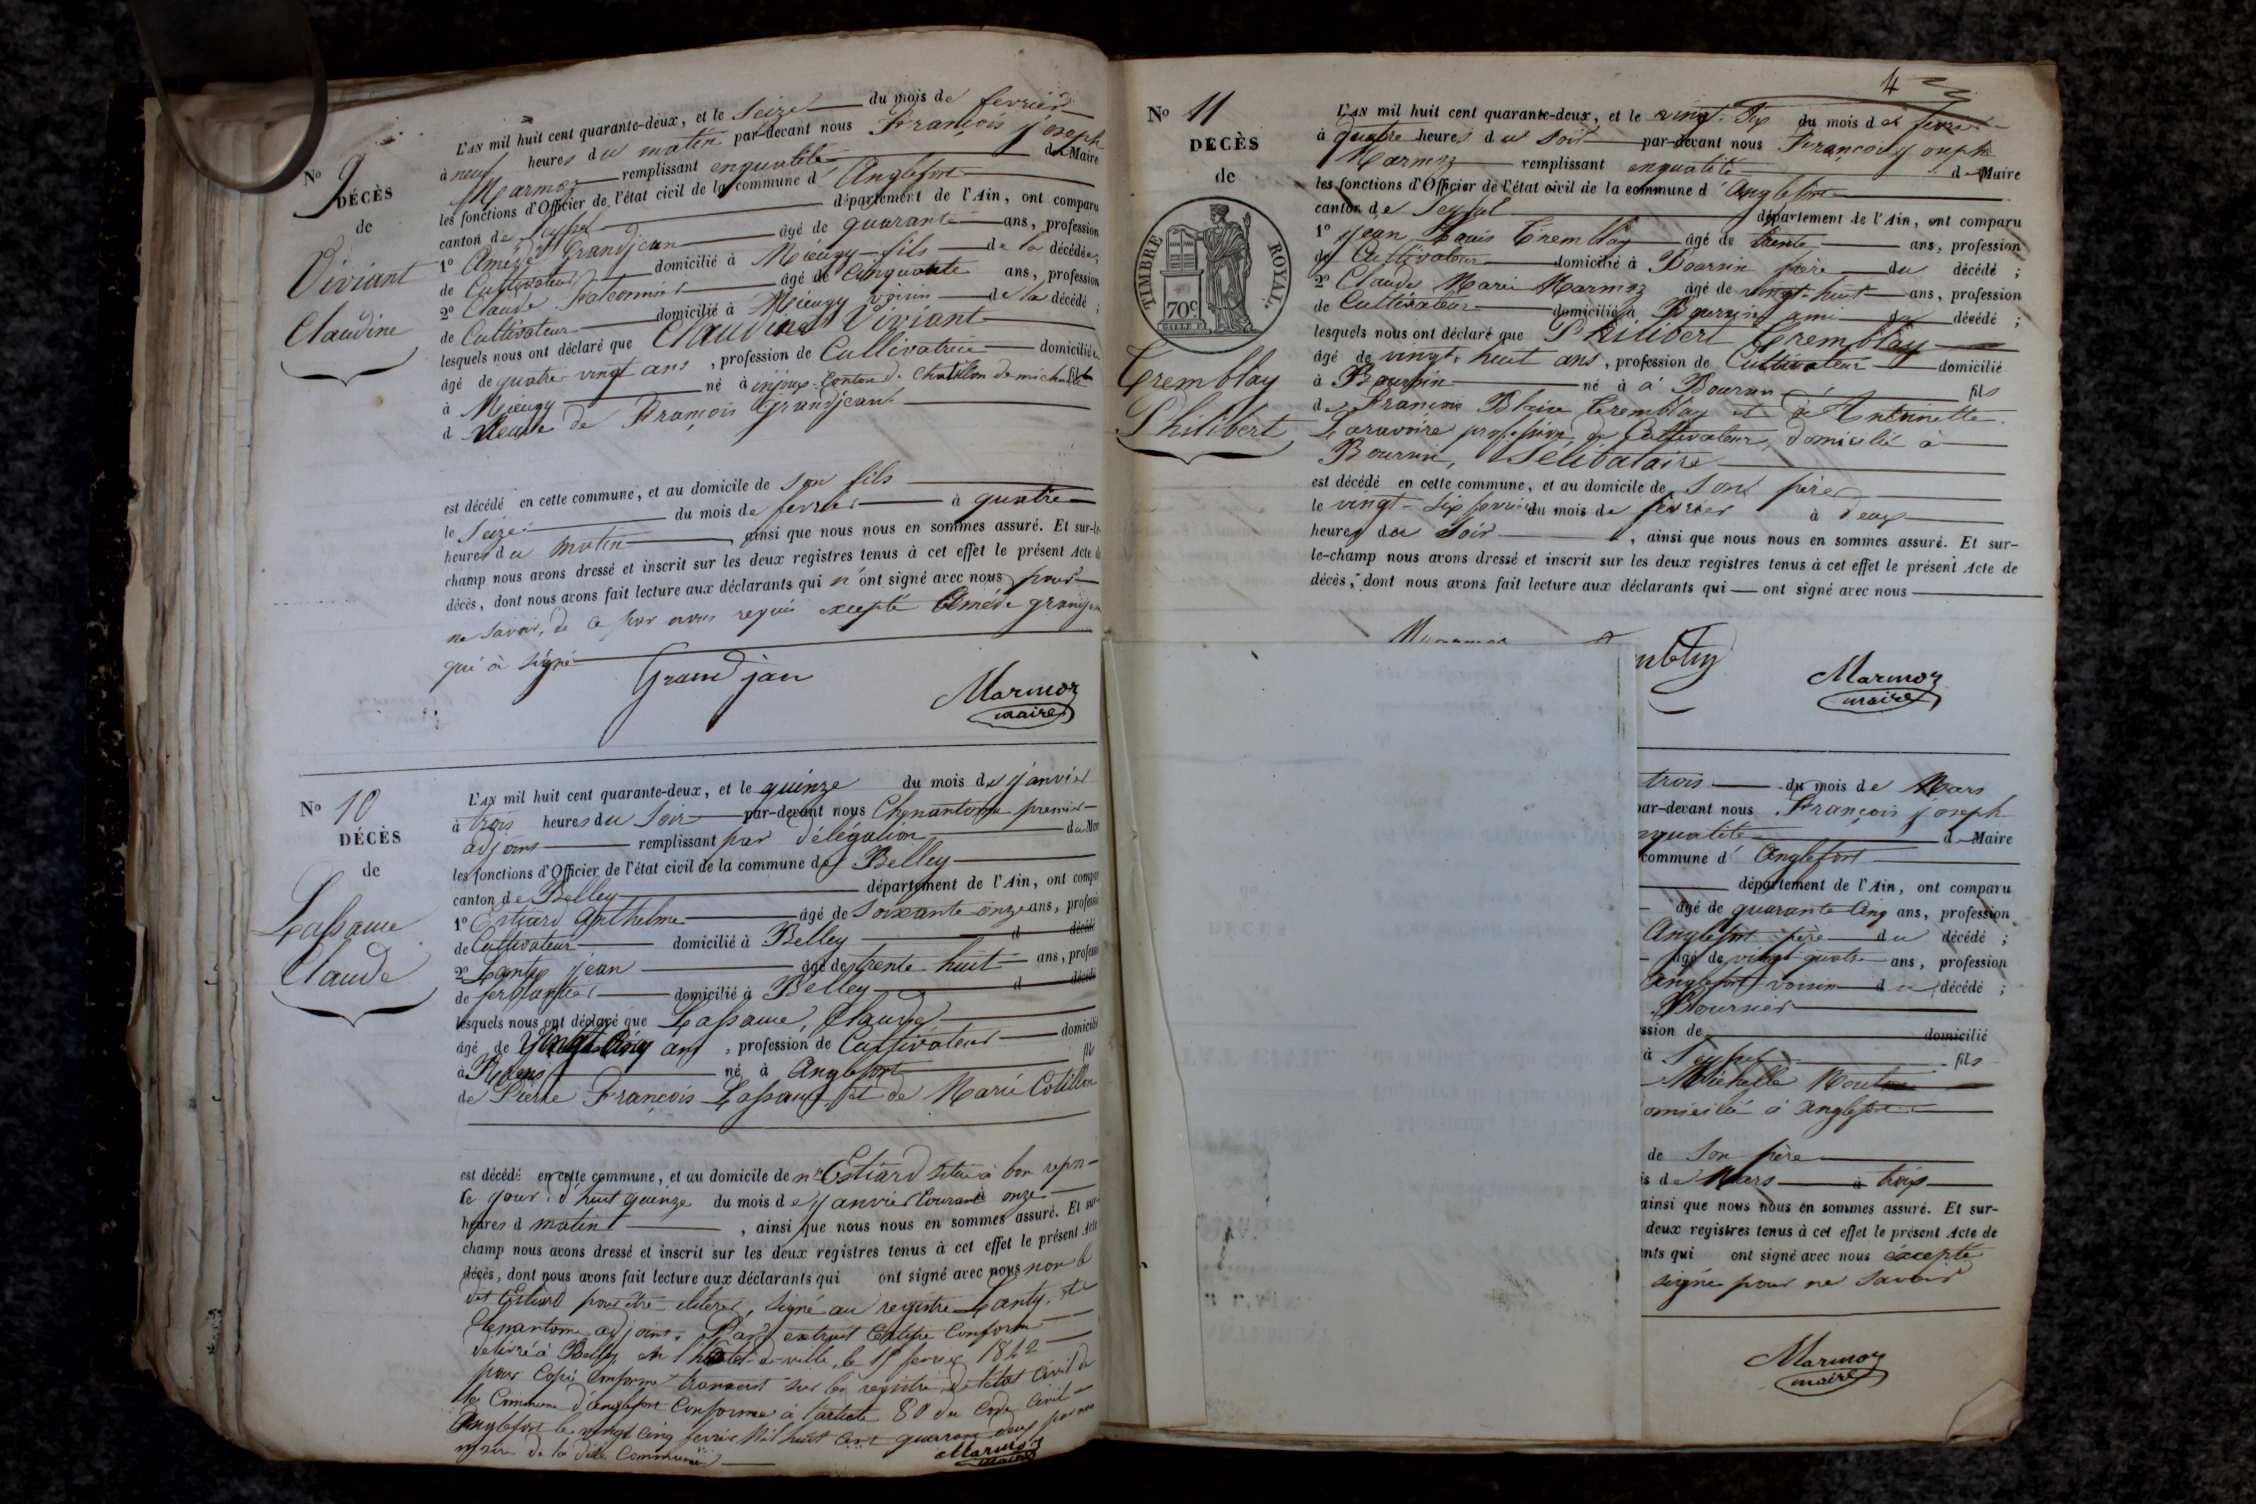 No 9
DÉCÈS
de
Viviant
Claudine
L'AN mil huit cent quarante-deux, et le Seize du mois de fevrier
à neuf heures du matin par-devant nous François joseph
Marmoz remplissant enqualité de Maire
les fonctions d'Officier de l'état civil de la commune d'Anglefort
canton de Seyssel département de l'Ain, ont comparu
1º Amédé Grandjean âgé de quarante ans, profession
de Cultivateur domicilié à Mieugy fils de la décédée;
2º Claude âgé de Cinquante ans, profession
de Cultivateur domicilié à Mieugy voisin de la décédé;
lesquels nous ont déclaré que Claudine Viviant
âgé de quatre vingt ans, profession de Cultivatrice domiciliée
à Mieugy né à injoux Canton de Chatillon de michaille
d Veuve de François Grandjean
est décédé en cette commune, et au domicile de son fils
le Seize du mois de fevrier à quatre
heures du matin, ainsi que nous nous en sommes assuré. Et sur-le-
champ nous avons dressé et inscrit sur les deux registres tenus à cet effet le présent Acte de
décès, dont nous avons fait lecture aux déclarants qui n'ont signé avec nous pour
ne savoir, de ce par nous requis excepté Amédé grandjean
qui à signé
Grand jan
Marmoz
maire
No 10
DÉCÈS
de
Lassaue
Claude
L'AN mil huit cent quarante-deux, et le quinze du mois de janvier
à trois heures du Soir par-devant nous Chenantome premier
adjoint remplissant par délégation du Mer
les fonctions d'Officier de l'état civil de la commune de Belley
canton de Belley département de l'Ain, ont compar
1º Estiard Anthelme âgé de Soixante onze ans, profession
de Cultivateur domicilié à Belley d décédé
2º Lanty jean âgé de trente huit ans, profession
de ferblantier domicilié à Belley d décédé
lesquels nous ont déclaré que Lassaue, Claude
âgé de Vingt Cinq ans, profession de Cultivateur domicilié
à né à Anglefort fils
de Pierre François Lassaue et de Marie Cotillon
est décédé en cette commune, et au domicile de Mr Estiard situé à bon repos
le jour d'huit quinze du mois de janvier Courant à onze
heures d matin, ainsi que nous nous en sommes assuré. Et sur
champ nous avons dressé et inscrit sur les deux registres tenus à cet effet le présent Acte
décès, dont nous avons fait lecture aux déclarants qui ont signé avec nous non le
dit Estiard pour être illiteré, signé au registre Lanty, et
Chenantome adjoint. Par extrait Certifié Conforme
delivré à Belley en l'hotel-de-ville, le 15 fevrier 1842
pour Copie Conforme transcrit sur les registres de l'état civil de
la Commune d'anglefort Conforme à l'article 80 du Code Civil
Anglefort le vingt cinq fevrier Mil huit Cent quarante deux par nous
maire de la dite Commune
Marmoz
maire
4
No 11
DÉCÈS
de
TIMBRE ROYAL.
70c
Tremblay
Philibert
L'AN mil huit cent quarante-deux, et le vingt-Six du mois de fevrier
à quatre heures du Soir par-devant nous François joseph
Marmoz remplissant enqualité de Maire
les fonctions d'Officier de l'état civil de la commune d'Anglefort
canton de Seyssel département de l'Ain, ont comparu
1º jean Louis Tremblay âgé de trente ans, profession
de Cultivateur domicilié à Boursin frère du décédé;
2º Claude Marie Marmoz âgé de vingt-huit ans, profession
de Cultivateur domicilié à Boursin ami du décédé;
lesquels nous ont déclaré que Philibert Tremblay
âgé de vingt-huit ans, profession de Cultivateur domicilié
à Boursin né à à Boursin fils
de François Tremblay et de Antoinette
profession de Cultivateur, domicilié à
Boursin, Célibataire
est décédé en cette commune, et au domicile de Son père
le vingt-Six fevrier du mois de fevrier à deux
heures du Soir, ainsi que nous nous en sommes assuré. Et sur-
le-champ nous avons dressé et inscrit sur les deux registres tenus à cet effet le présent Acte de
décès, dont nous avons fait lecture aux déclarants qui ont signé avec nous
Marmoz
maire
trois du mois de Mars
par-devant nous François joseph
nqualité de Maire
commune d'Anglefort
département de l'Ain, ont comparu
âgé de quarante Cinq ans, profession
Anglefort père du décédé;
âgé de vingt quatre ans, profession
Anglefort voisin du décédé;
Bournier
ssion de domicilié
à Seyssel fils
Michelle
omicilié à Anglefort
de Son père
is de Mars à trois
ainsi que nous nous en sommes assuré. Et sur-
deux registres tenus à cet effet le présent Acte de
nts qui ont signé avec nous excepté
signé pour ne Savoir
Marmoz
maire